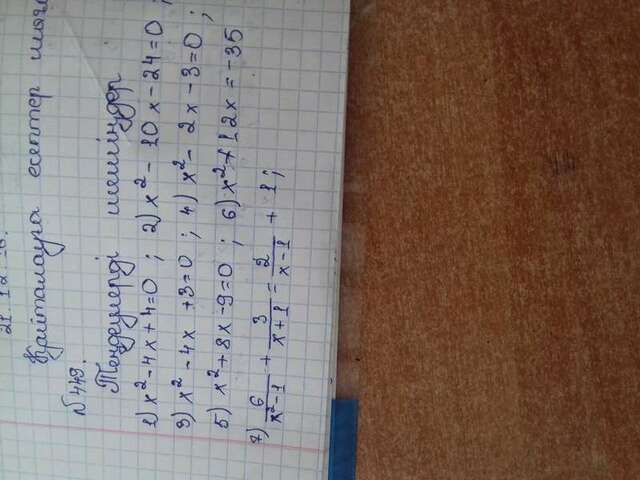 21.12.18.
Қайталауға есептер шығ
№449.
Теңдеулерді шешіңдер
1) x² - 4x + 4 = 0 ; 2) x² - 10x - 24 = 0 ;
3) x² - 4x + 3 = 0 ; 4) x² - 2x - 3 = 0 ;
5) x² + 8x - 9 = 0 ; 6) x² + 12x = -35
7) 6/(x² - 1) + 3/(x + 1) = 2/(x - 1) + 1 ;